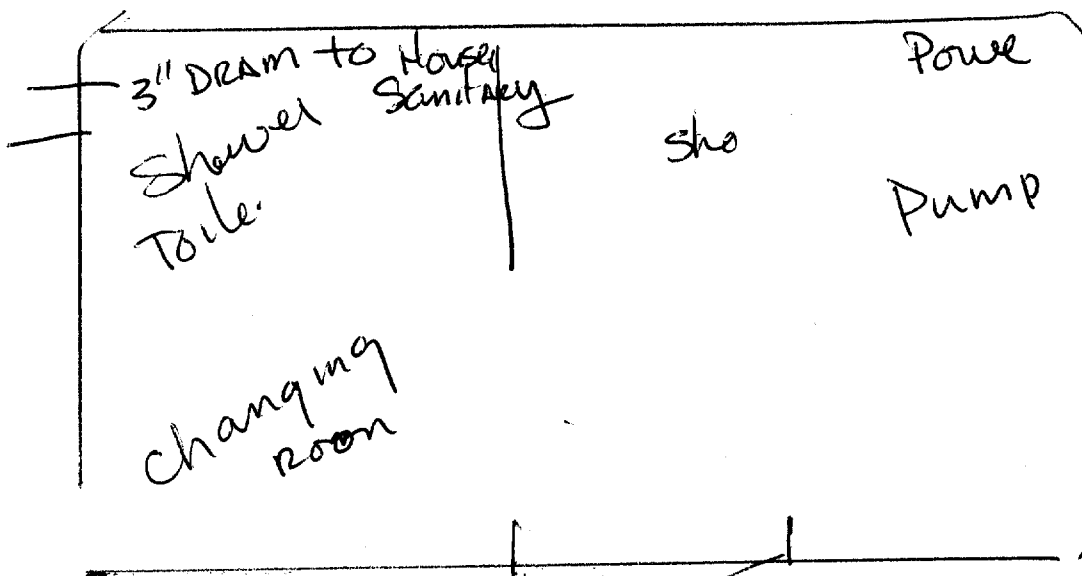 3" DRAIN to House
Sanitary
Shower
Toile.
Changing
Room
Sho
Powe
Pump